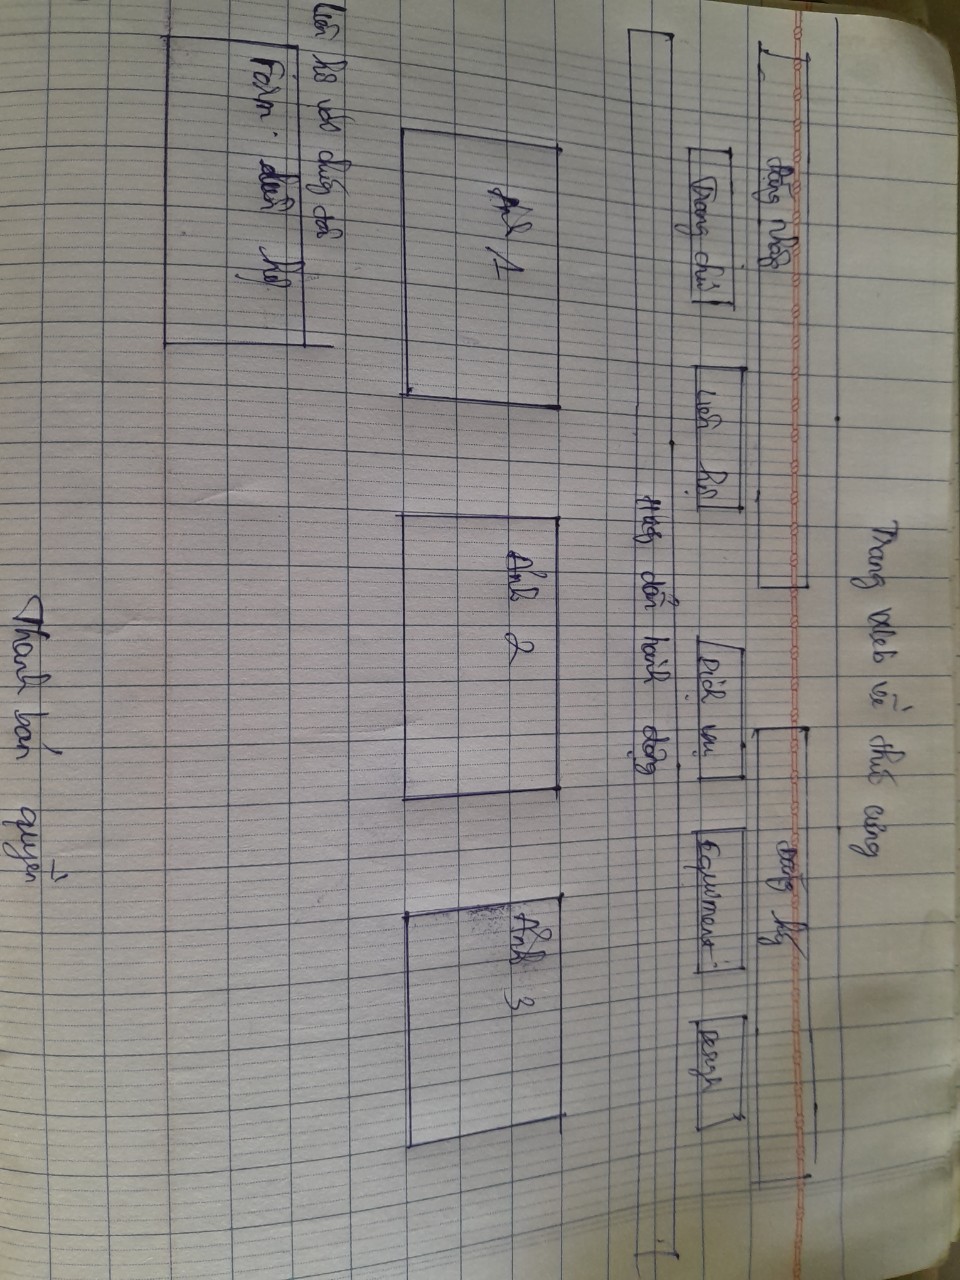 Trang web về thú cưng
Đăng nhập
Đăng ký
Trang chủ
Liên hệ
Dịch vụ
Equitment
Design
dẫn hành động
Ảnh 1
Ảnh 2
Ảnh 3
Liên hệ với chúng tôi
Form liên hệ
Thanh bản quyền